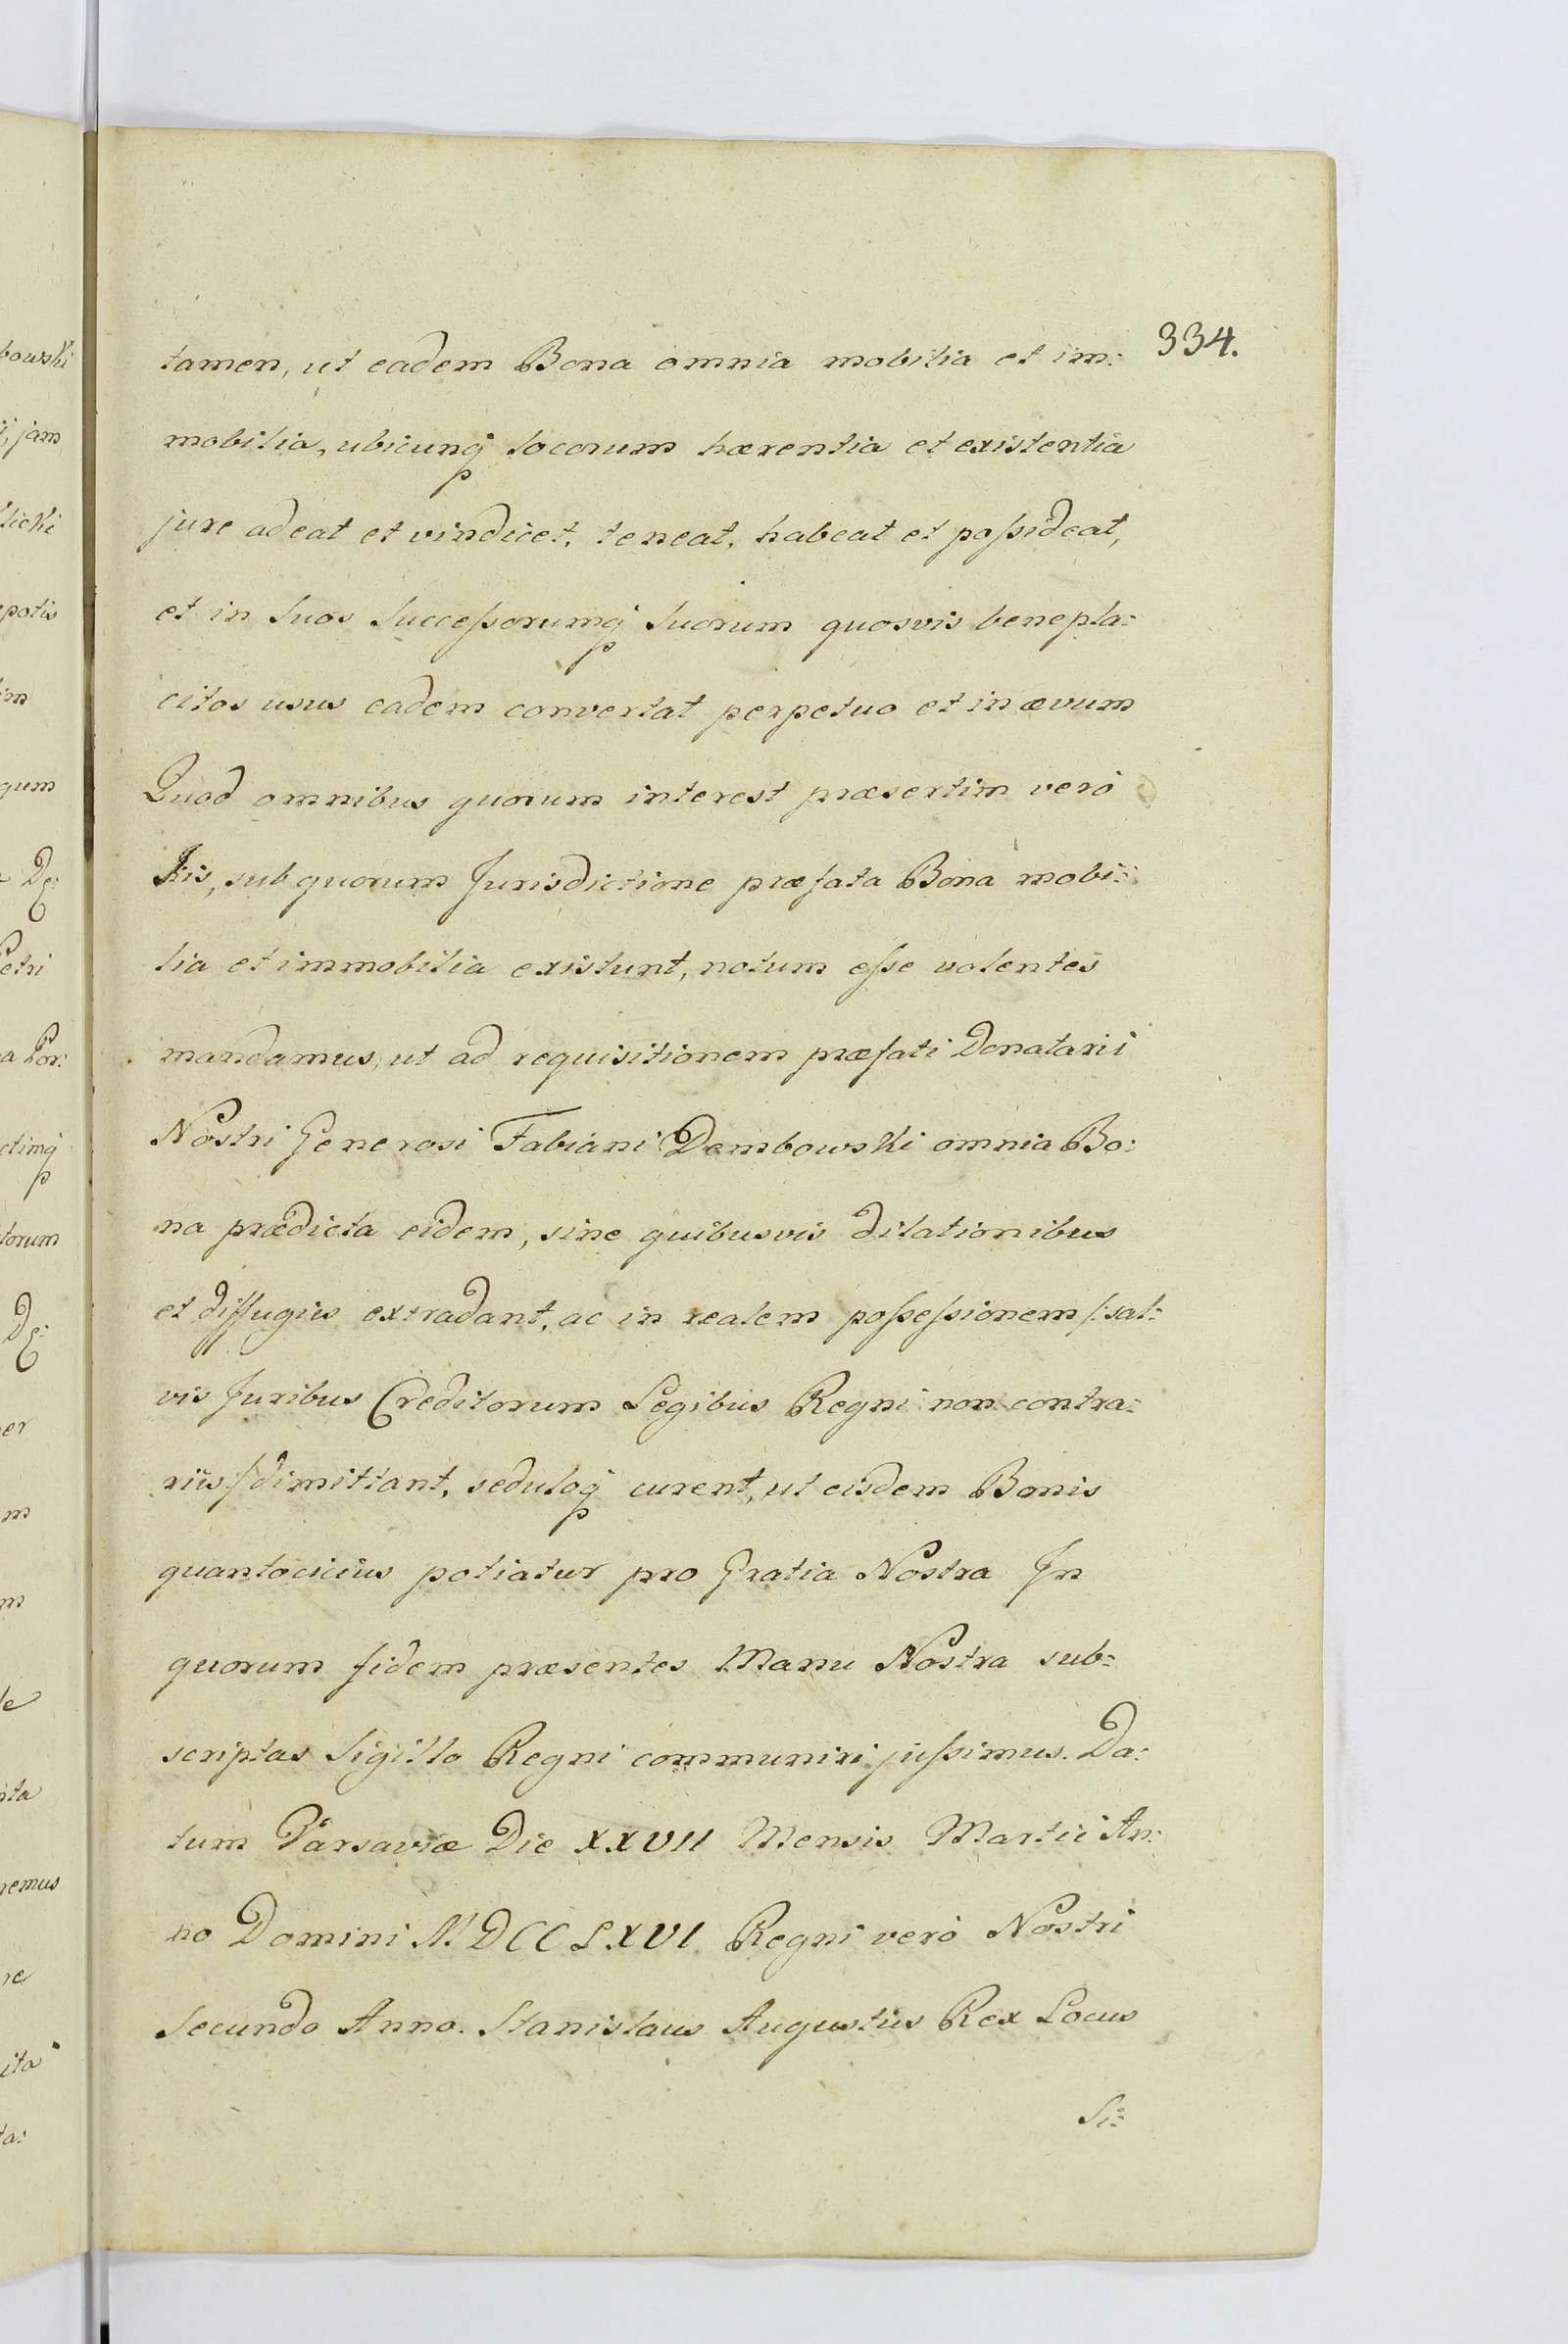 334.
tamen, ut eadem Bona omnia mobilia et im:
mobilia, ubicunq́ locorum hærentia et existentia
jure adeat et vindicet, teneat, habeat et poßideat,
et in Suos Succeßorumq́ Suorum quosvis benepla:
citos usus eadem convertat perpetuo et in ævum
Quod omnibus quorum interest præsertim verò
Iis, sub quorum Jurisdictione præfata Bona mobi:
lia et immobilia existunt, notum eße volentes
mandamus, ut ad requisitionem præfati Donatarii
Nostri Generosi Fabiani Dembowski omnia Bo:
na prædicta eidem, sine quibusvis dilationibus
et diffugiis extradant, ac in realem poßeßionem /:sal:
vis Juribus Creditorum Legibus Regni non contra:
riis:/ dimittant, seduloq́ curent, ut eisdem Bonis
quantocicius potiatur pro Gratia Nostra In
quorum fidem præsentes Manu Nostra sub:
scriptas Sigillo Regni communiri jußimus. Da:
tum Varsaviæ Die XXVII Mensis Martii An:
no Domini MDCCLXVI Regni verò Nostri
Secundo Anno. Stanislaus Augustus Rex Locus
Si:
bowski
jam
licki
potis
im
qum
De:
Petri
a Por:
ctimq́
torum
De:
er
m
m
le
nta
remus
re
ita
ta: